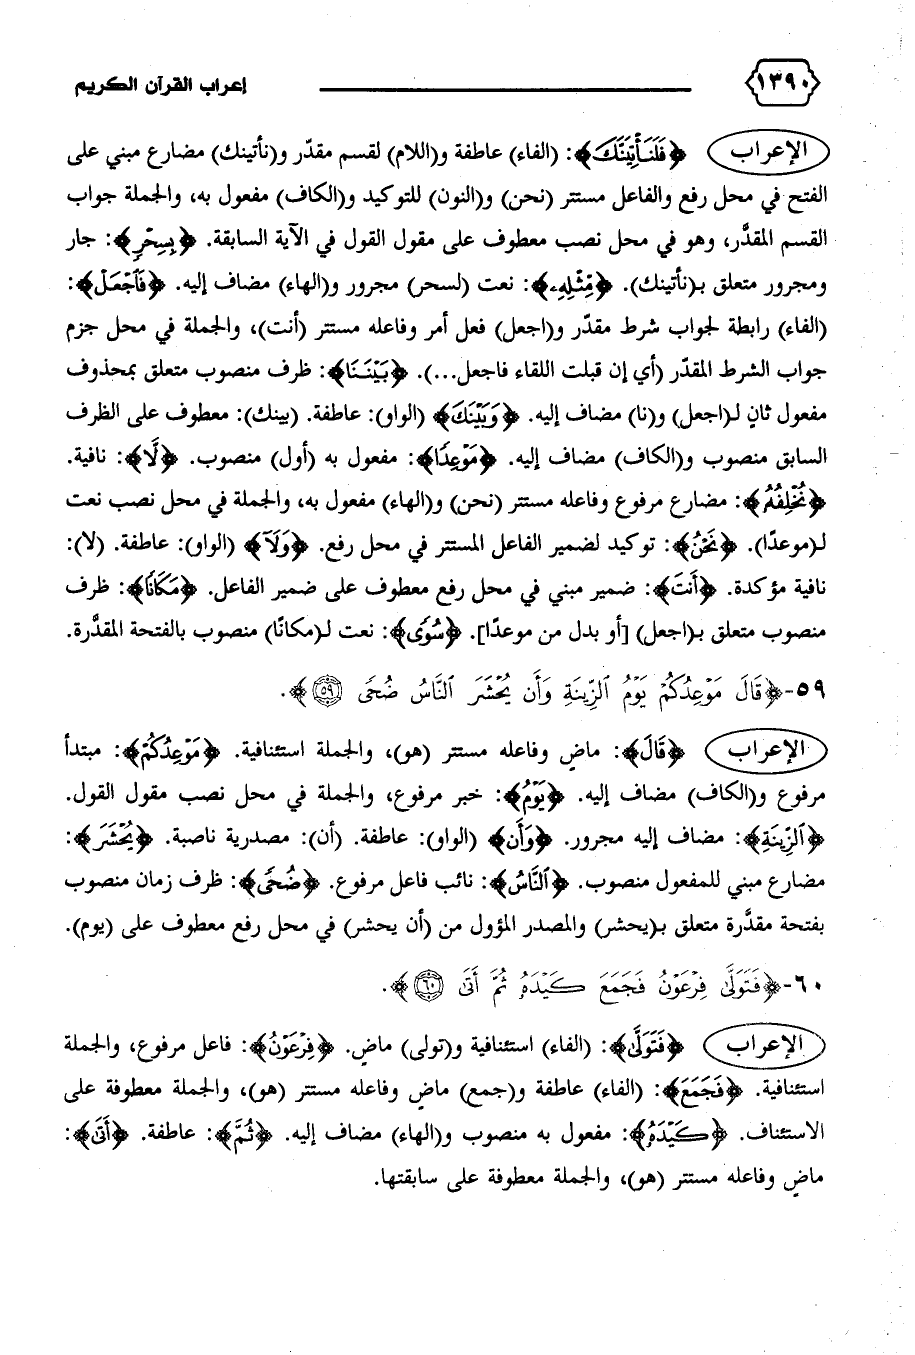 ١٣٩٠ إعراب القرآن الكريم
الإعراب ﴿فَلَنَأْتِيَنَّكَ﴾: (الفاء) عاطفة و(اللام) لقسم مقدّر و(نأتينك) مضارع مبني على
الفتح في محل رفع والفاعل مستتر (نحن) و(النون) للتوكيد و(الكاف) مفعول به، والجملة جواب
القسم المقدَّر، وهو في محل نصب معطوف على مقول القول في الآية السابقة. ﴿بِسِحْرٍ﴾: جار
ومجرور متعلق بـ(نأتينك). ﴿مِّثْلِهِۦ﴾: نعت (لسحر) مجرور و(الهاء) مضاف إليه. ﴿فَٱجْعَلْ﴾:
(الفاء) رابطة لجواب شرط مقدّر و(اجعل) فعل أمر وفاعله مستتر (أنت)، والجملة في محل جزم
جواب الشرط المقدّر (أي إن قبلت اللقاء فاجعل...). ﴿بَيْنَنَا﴾: ظرف منصوب متعلق بمحذوف
مفعول ثانٍ لـ(اجعل) و(نا) مضاف إليه. ﴿وَبَيْنَكَ﴾ (الواو): عاطفة. (بينك): معطوف على الظرف
السابق منصوب و(الكاف) مضاف إليه. ﴿مَوْعِدًا﴾: مفعول به (أول) منصوب. ﴿لَّا﴾: نافية.
﴿نُخْلِفُهُۥ﴾: مضارع مرفوع وفاعله مستتر (نحن) و(الهاء) مفعول به، والجملة في محل نصب نعت
لـ(موعدًا). ﴿نَحْنُ﴾: توكيد لضمير الفاعل المستتر في محل رفع. ﴿وَلَآ﴾ (الواو): عاطفة. (لا):
نافية مؤكدة. ﴿أَنتَ﴾: ضمير مبني في محل رفع معطوف على ضمير الفاعل. ﴿مَكَانًا﴾: ظرف
منصوب متعلق بـ(اجعل) [أو بدل من موعدًا]. ﴿سُوًى﴾: نعت لـ(مكانًا) منصوب بالفتحة المقدَّرة.
٥٩-﴿قَالَ مَوْعِدُكُمْ يَوْمُ ٱلزِّينَةِ وَأَن يُحْشَرَ ٱلنَّاسُ ضُحًى ٥٩﴾.
الإعراب ﴿قَالَ﴾: ماضٍ وفاعله مستتر (هو)، والجملة استئنافية. ﴿مَوْعِدُكُمْ﴾: مبتدأ
مرفوع و(الكاف) مضاف إليه. ﴿يَوْمُ﴾: خبر مرفوع، والجملة في محل نصب مقول القول.
﴿ٱلزِّينَةِ﴾: مضاف إليه مجرور. ﴿وَأَن﴾ (الواو): عاطفة. (أن): مصدرية ناصبة. ﴿يُحْشَرَ﴾:
مضارع مبني للمفعول منصوب. ﴿ٱلنَّاسُ﴾: نائب فاعل مرفوع. ﴿ضُحًى﴾: ظرف زمان منصوب
بفتحة مقدَّرة متعلق بـ(يحشر) والمصدر المؤول من (أن يحشر) في محل رفع معطوف على (يوم).
٦٠-﴿فَتَوَلَّىٰ فِرْعَوْنُ فَجَمَعَ كَيْدَهُۥ ثُمَّ أَتَىٰ ٦٠﴾.
الإعراب ﴿فَتَوَلَّىٰ﴾: (الفاء) استئنافية و(تولى) ماضٍ. ﴿فِرْعَوْنُ﴾: فاعل مرفوع، والجملة
استئنافية. ﴿فَجَمَعَ﴾: (الفاء) عاطفة و(جمع) ماضٍ وفاعله مستتر (هو)، والجملة معطوفة على
الاستئناف. ﴿كَيْدَهُۥ﴾: مفعول به منصوب و(الهاء) مضاف إليه. ﴿ثُمَّ﴾: عاطفة. ﴿أَتَىٰ﴾:
ماضٍ وفاعله مستتر (هو)، والجملة معطوفة على سابقتها.